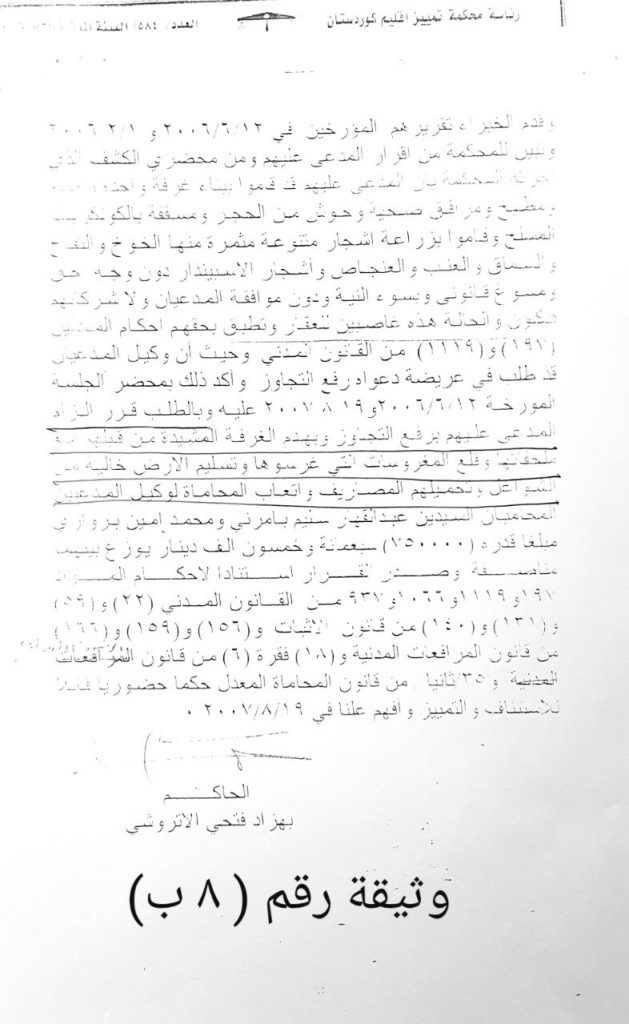 رئاسة محكمة تمييز اقليم كوردستان
العدد/ ٥٨٤/ السنة
وقدم الخبراء تقريرهم المؤرخين في ٢٠٠٦/٦/١٢ و
وتبين للمحكمة من اقرار المدعى عليهم ومن محضري الكشف الذي
المحكمة بان المدعى عليهم قد قاموا ببناء غرفة واحدة
ومطبخ ومرافق صحية وحوش من الحجر ومسقفة بالكونكريت
المسلح وقاموا بزراعة اشجار متنوعة مثمرة منها الخوخ والتفاح
والسماق والعنب والعنجاص وأشجار الاسبيندار دون وجه حق
ومسوغ قانوني وبسوء النية ودون موافقة المدعيان ولا شركائهم
فيكون والحالة هذه غاصبين للعقار وتطبق بحقهم احكام المادتين
(١٩٧) و(١١١٩) من القانون المدني وحيث أن وكيل المدعيان
قد طلب في عريضة دعواه رفع التجاوز وأكد ذلك بمحضر الجلسة
المورخة ٢٠٠٦/٦/١٢ و١٩ ٨ ٢٠٠٧ عليه وبالطلب قرر الزام
المدعى عليهم برفع التجاوز وبهدم الغرفة المشيدة من قبلهم مع
ملحقاتها وقلع المغروسات التي غرسوها وتسليم الارض خاليه من
الشواغل وتحميلهم المصاريف واتعاب المحاماة لوكيل المدعيين
المحاميان السيدين عبدالقهار سليم بامرني ومحمد امين برواري
مبلغا قدره (٧٥٠٠٠٠) سبعمائة وخمسون الف دينار يوزع بينهما
مناصفة وصدر القرار استنادا لاحكام المواد
١٩٧ و١١١٩ و١٠٦٦ و٩٣٧ من القانون المدني (٢٢) و(٥٩)
و(١٣١) و(١٤٠) من قانون الاثبات و(١٥٦) و(١٥٩) و(١٦٦)
من قانون المرافعات المدنية و(١٨) فقرة (٦) من قانون المرافعات
المدنية و ٣٥/ثانيا من قانون المحاماة المعدل حكما حضوريا قابلا
للاستئناف والتمييز وأفهم علنا في ٢٠٠٧/٨/١٩ .
الحاكم
بهزاد فتحي الاتروشي
وثيقة رقم (٨ ب)